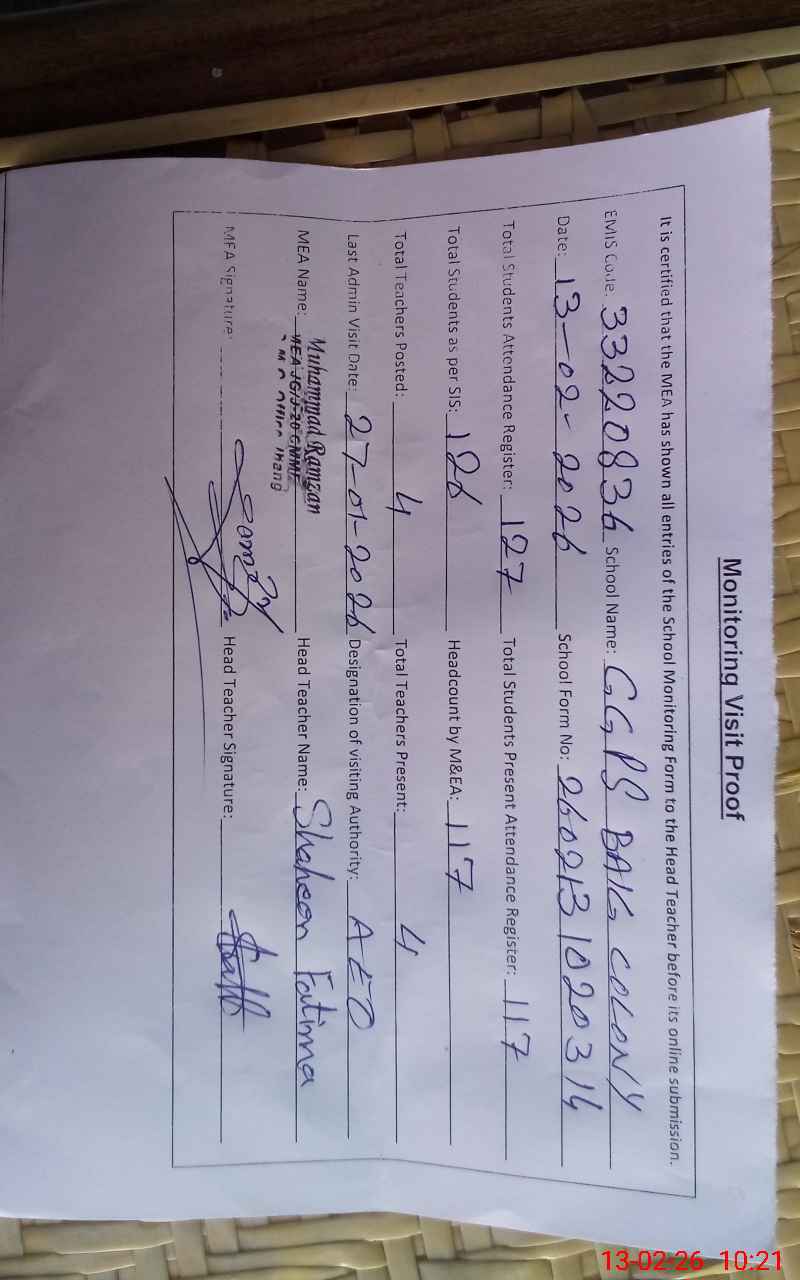 Monitoring Visit Proof
It is certified that the MEA has shown all entries of the School Monitoring Form to the Head Teacher before its online submission.
EMIS Code: 33220836 School Name: GGPS BAIG COLONY
Date: 13-02-2026 School Form No: 26021310203 14
Total Students Attendance Register: 127 Total Students Present Attendance Register: 117
Total Students as per SIS: 126 Headcount by M&EA: 117
Total Teachers Posted: 4 Total Teachers Present: 4
Last Admin Visit Date: 27-01-2026 Designation of visiting Authority: AEO
MEA Name: Muhammad Ramzan Head Teacher Name: Shaheen Fatima
MEA Signature: Head Teacher Signature:
13-02-26 10:21